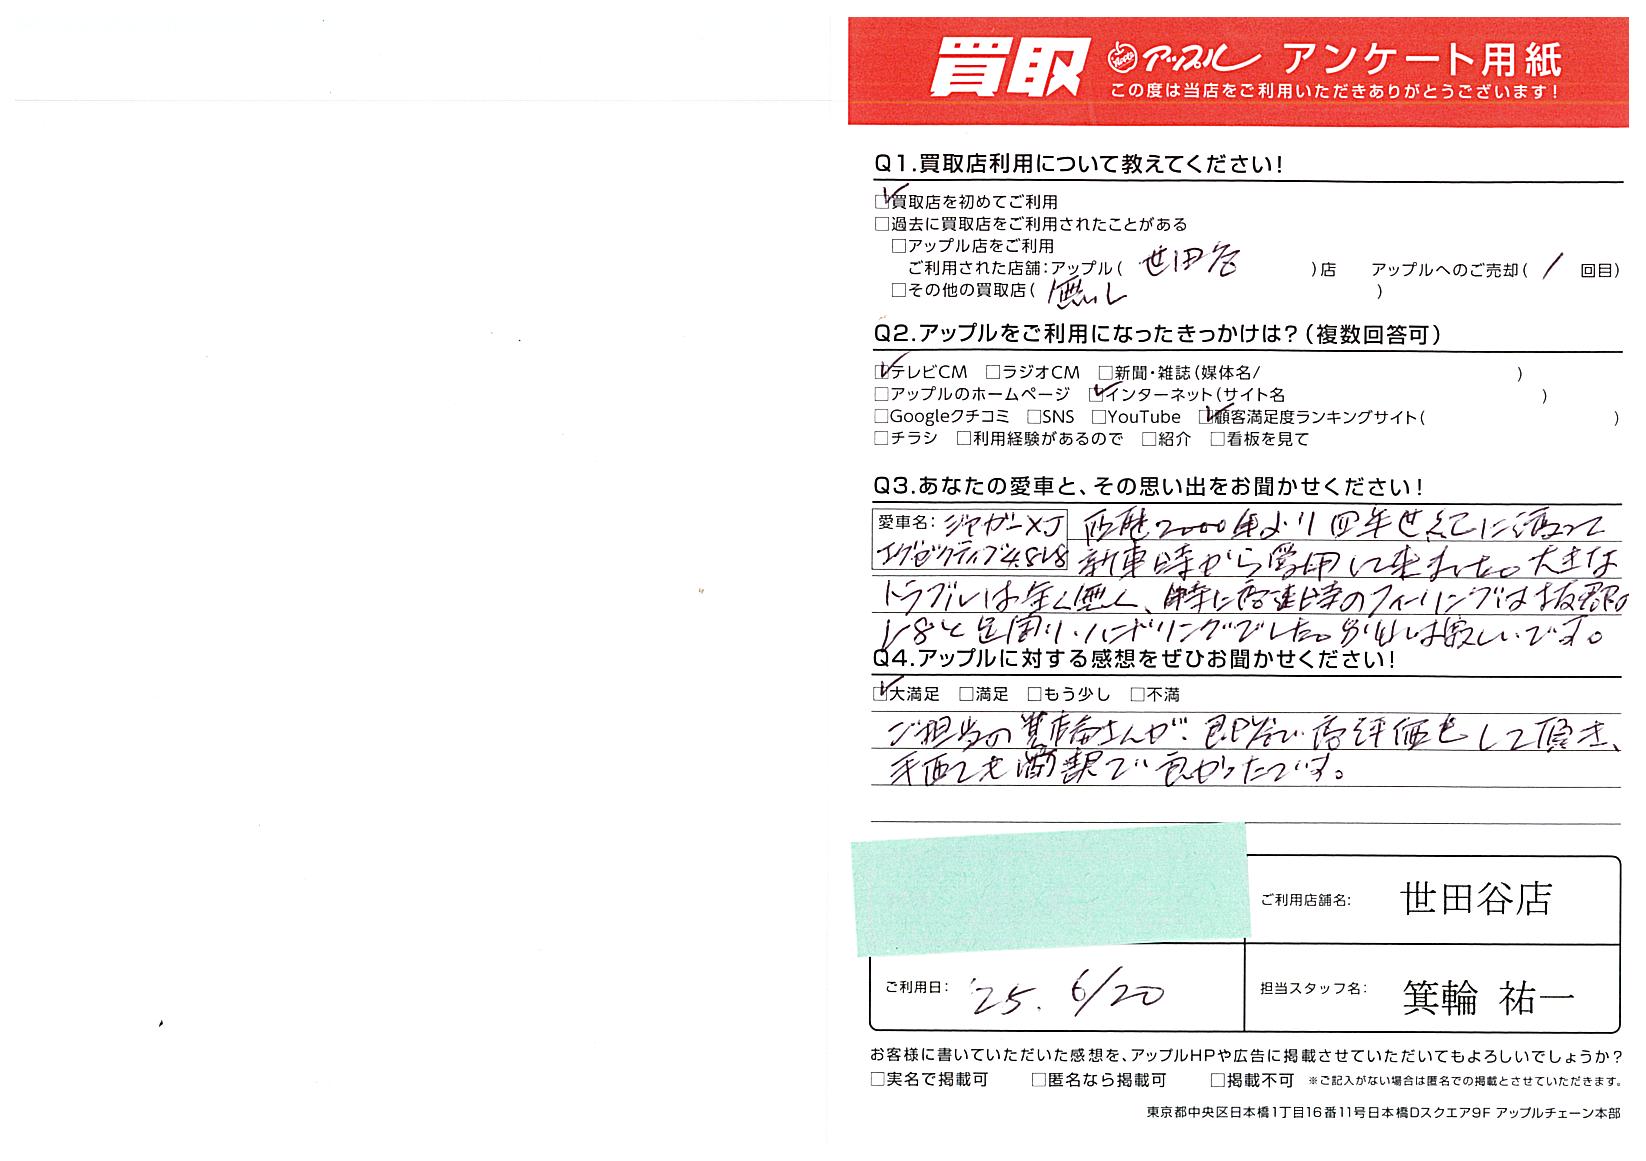 買取 アップル アンケート用紙
この度は当店をご利用いただきありがとうございます!
Q1.買取店利用について教えてください!
買取店を初めてご利用
過去に買取店をご利用されたことがある
アップル店をご利用
ご利用された店舗:アップル( 世田谷 )店 アップルへのご売却( 1 回目)
その他の買取店( 無し )
Q2.アップルをご利用になったきっかけは?(複数回答可)
テレビCM ラジオCM 新聞・雑誌(媒体名/ )
アップルのホームページ インターネット(サイト名 )
Googleクチコミ SNS YouTube 顧客満足度ランキングサイト( )
チラシ 利用経験があるので 紹介 看板を見て
Q3.あなたの愛車と、その思い出をお聞かせください!
愛車名: ジャガーXJ 西暦2000年より四半世紀に渡って
エグゼクティブ4.8V8 新車時から愛用して来ました。大きな
トラブルは全く無く、特に高速時のフィーリングは抜群の
V8と足回り・ハンドリングでした。お別れは寂しいです。
Q4.アップルに対する感想をぜひお聞かせください!
大満足 満足 もう少し 不満
ご担当の さんが、 高評価をして頂き、
とても 良かったです。
ご利用店舗名: 世田谷店
ご利用日: '25. 6/20
担当スタッフ名: 箕輪 祐一
お客様に書いていただいた感想を、アップルHPや広告に掲載させていただいてもよろしいでしょうか?
実名で掲載可 匿名なら掲載可 掲載不可 ※ご記入がない場合は匿名での掲載とさせていただきます。
東京都中央区日本橋1丁目16番11号日本橋Dスクエア9F アップルチェーン本部